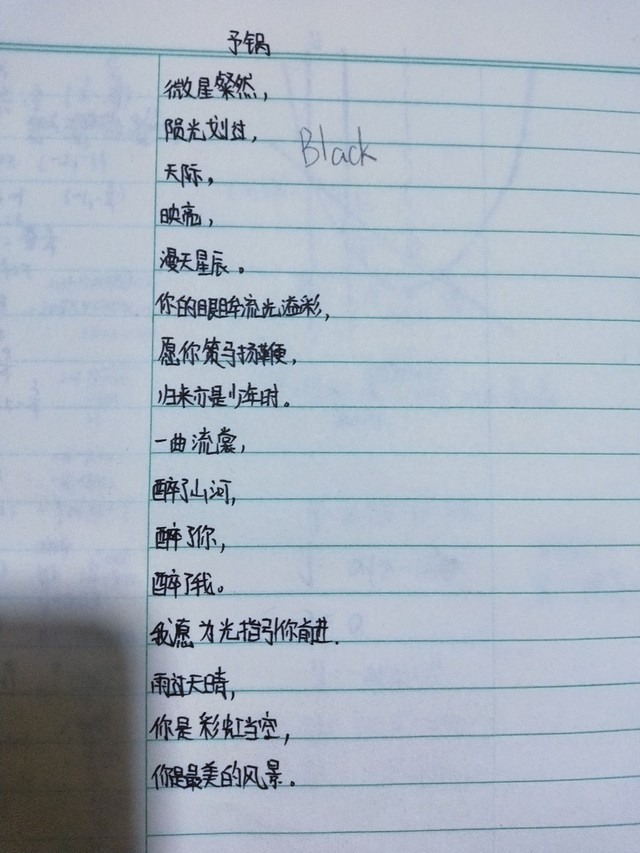 予锅
微星粲然，
陨光划过，
Black
天际，
映亮，
漫天星辰。
你的眼眸流光溢彩，
愿你策马扬鞭，
归来亦是少年时。
一曲流裳，
醉了山河，
醉了你，
醉了我。
我愿为光指引你前进.
雨过天晴，
你是彩虹当空，
你是最美的风景。